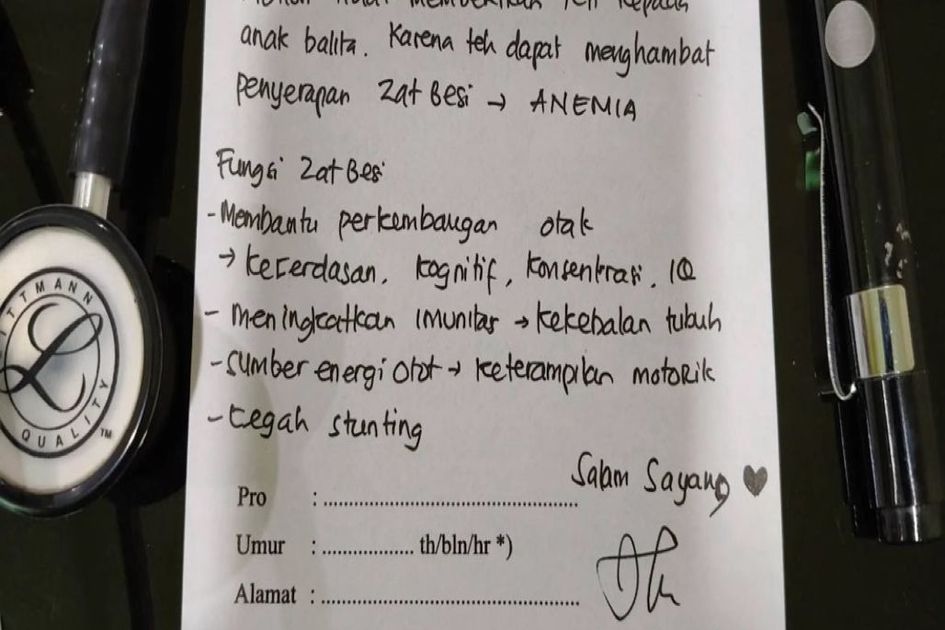 memberikan teh kepada
anak balita. Karena teh dapat menghambat
penyerapan Zat Besi → ANEMIA
Fungsi Zat Besi
- Membantu perkembangan otak
→ kecerdasan, kognitif, konsentrasi, IQ
- meningkatkan imunitas → kekebalan tubuh
- sumber energi otot → keterampilan motoRik
- cegah stunting
Salam Sayang ♥
Pro : ..................................................
Umur : .................. th/bln/hr *)
Alamat : ..................................................
LITTMANN
QUALITY ™